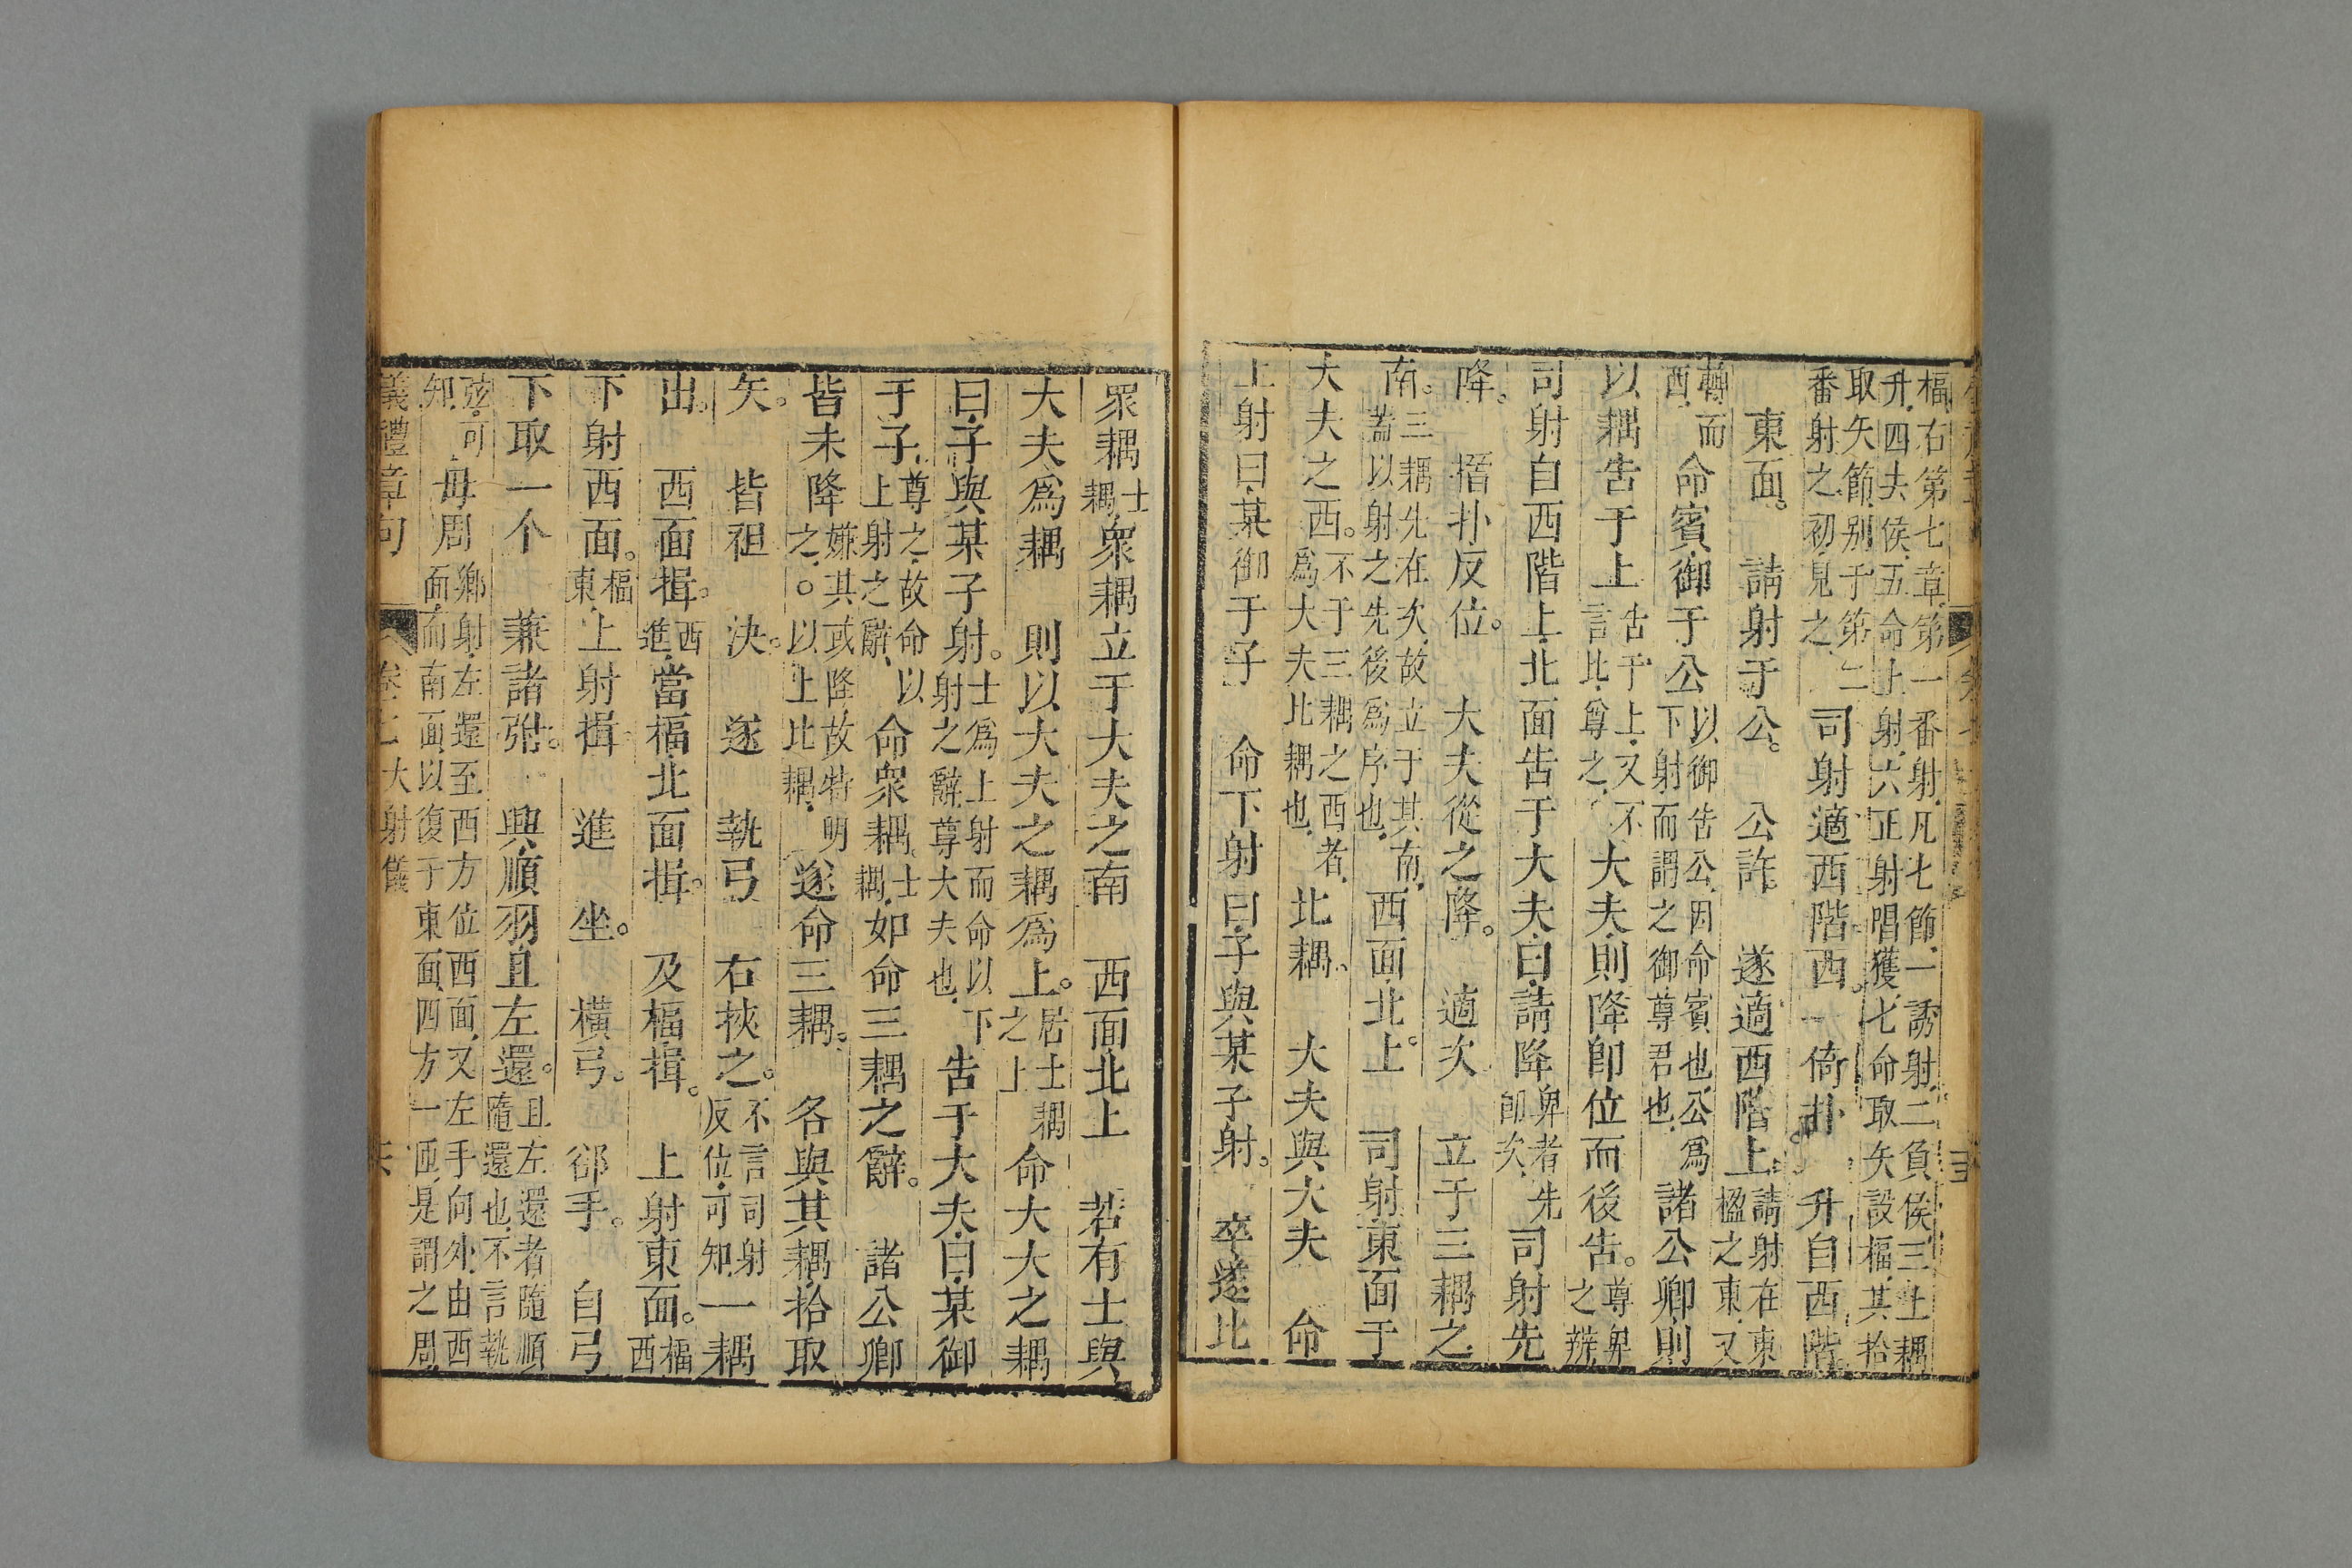 楅右第七章第一番射凡七節一誘射二負侯三上耦
升四去侯五命上射六正射唱獲七命取矢設楅其拾
取矢節別于第二
番射之初見之
司射適西階西。倚扑。升自西階。
東面。請射于公。公許。遂適西階上。請射在東
楹之東又
西
而命賓御于公以御告公因命賓也公爲
下射而謂之御尊君也
諸公卿則
以耦告于上告于上又不
言比尊之
大夫則降卽位而後告。尊卑
之辨
司射自西階上北面告于大夫曰請降卑者先
卽次
司射先
降。搢扑反位。大夫從之降。適次立于三耦之
南。三耦先在次故立于其南
蓋以射之先後爲序也
西面北上。司射東面于
大夫之西。不于三耦之西者
爲大夫比耦也
比耦。大夫與大夫命
上射曰某御于子命下射曰子與某子射。卒遂比
衆耦士
耦
衆耦立于大夫之南西面北上若有士與
大夫爲耦則以大夫之耦爲上。居士耦
之上
命大夫之耦
曰子與某子射。士爲上射而命以下
射之辭尊大夫也
告于大夫曰某御
于子尊之故命以
上射之辭
命衆耦士
耦
如命三耦之辭。諸公卿
皆未降嫌其或降故特明
之。以上比耦
遂命三耦。各與其耦拾取
矢。皆袒決。遂執弓右挾之。不言司射
反位可知
一耦
出。西面揖。西
進
當楅北面揖。及楅揖。上射東面。楅
西
下射西面。楅
東
上射揖進坐。橫弓。郤手。自弓
下取一个兼諸弣。興順羽且左還。且左還者隨順
隨還也不言執
弦可
知
毋周鄉射左還至西方位西面又左手向外由西
面而南面以復于東面四方一匝是謂之周
儀禮章句
卷七大射儀